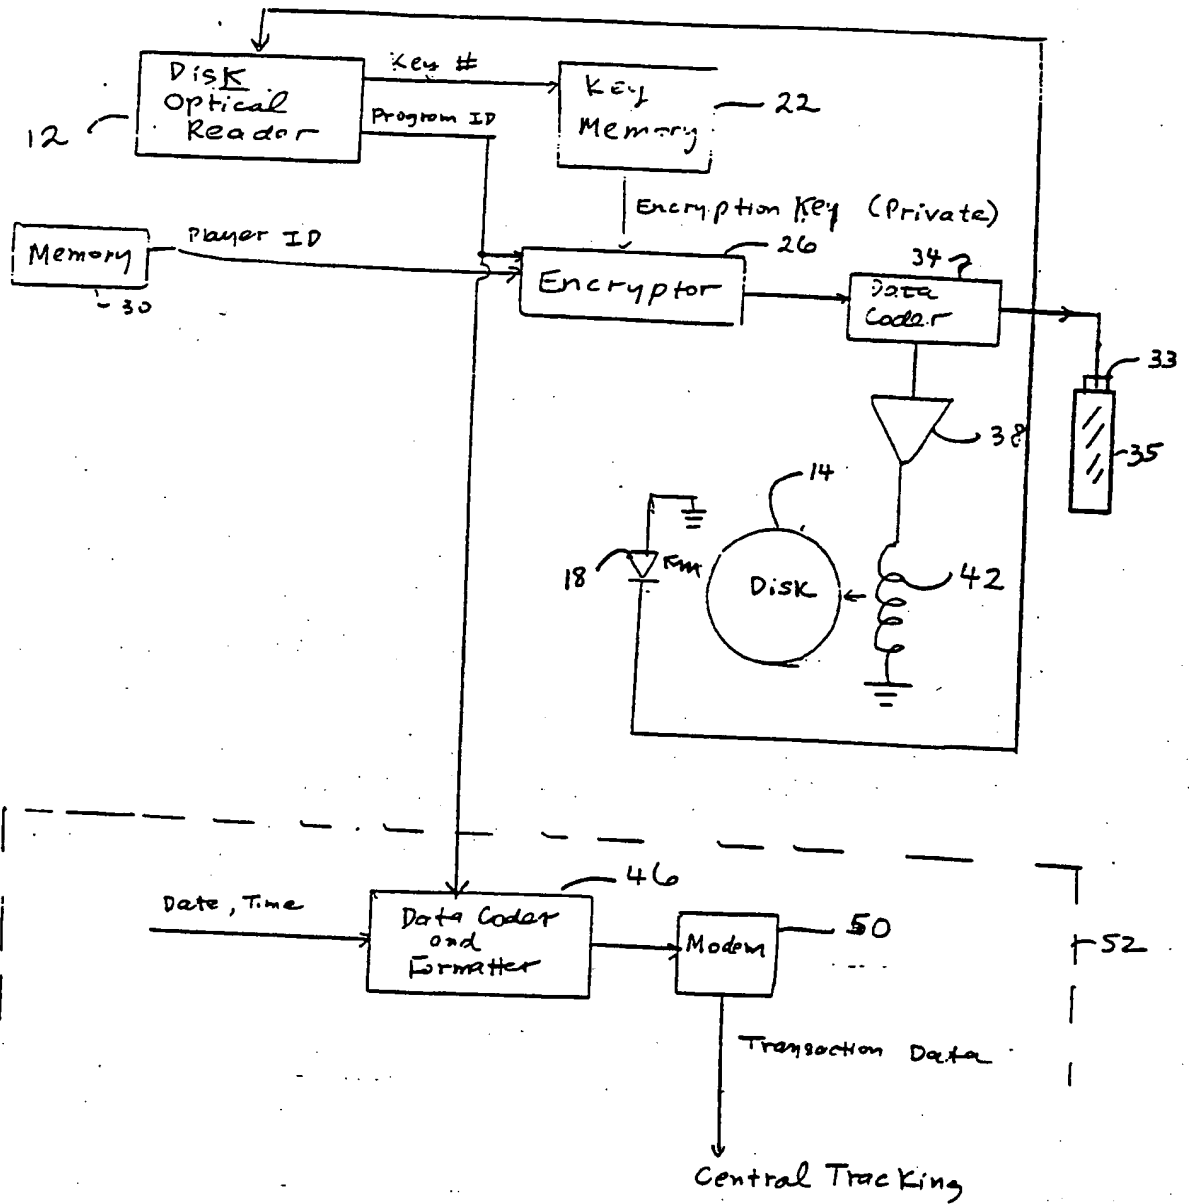 Disk
Optical
Reador
12
Key #
Program ID
Key
Memory
22
Encryption Key (Private)
Memory
30
Player ID
Encryptor
26
34
Data
Coder
33
35
38
14
18
Disk
42
Date, Time
Data Coder
and
Formatter
46
Modem
50
52
Transaction Data
Central Tracking